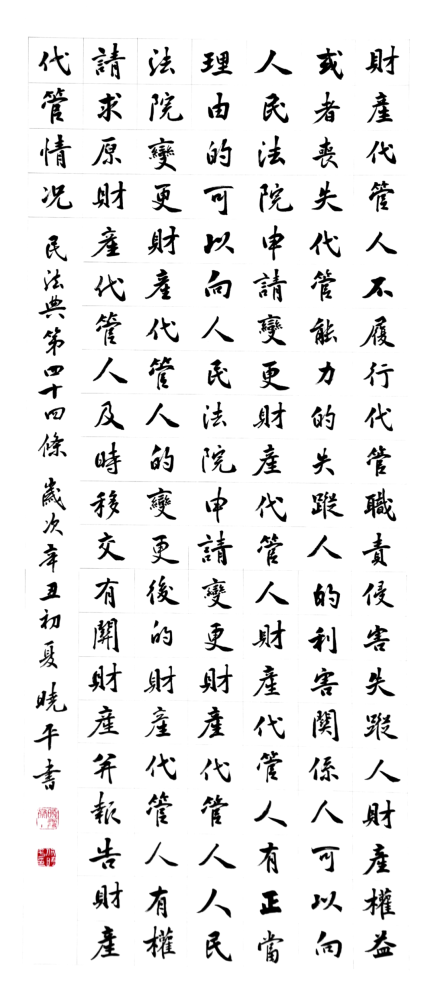 財產代管人不履行代管職責侵害失蹤人財產權益
或者喪失代管能力的失蹤人的利害關係人可以向
人民法院申請變更財產代管人財產代管人有正當
理由的可以向人民法院申請變更財產代管人人民
法院變更財產代管人的變更後的財產代管人有權
請求原財產代管人及時移交有關財產并報告財產
代管情況 民法典第四十四條 歲次辛丑初夏 曉平書